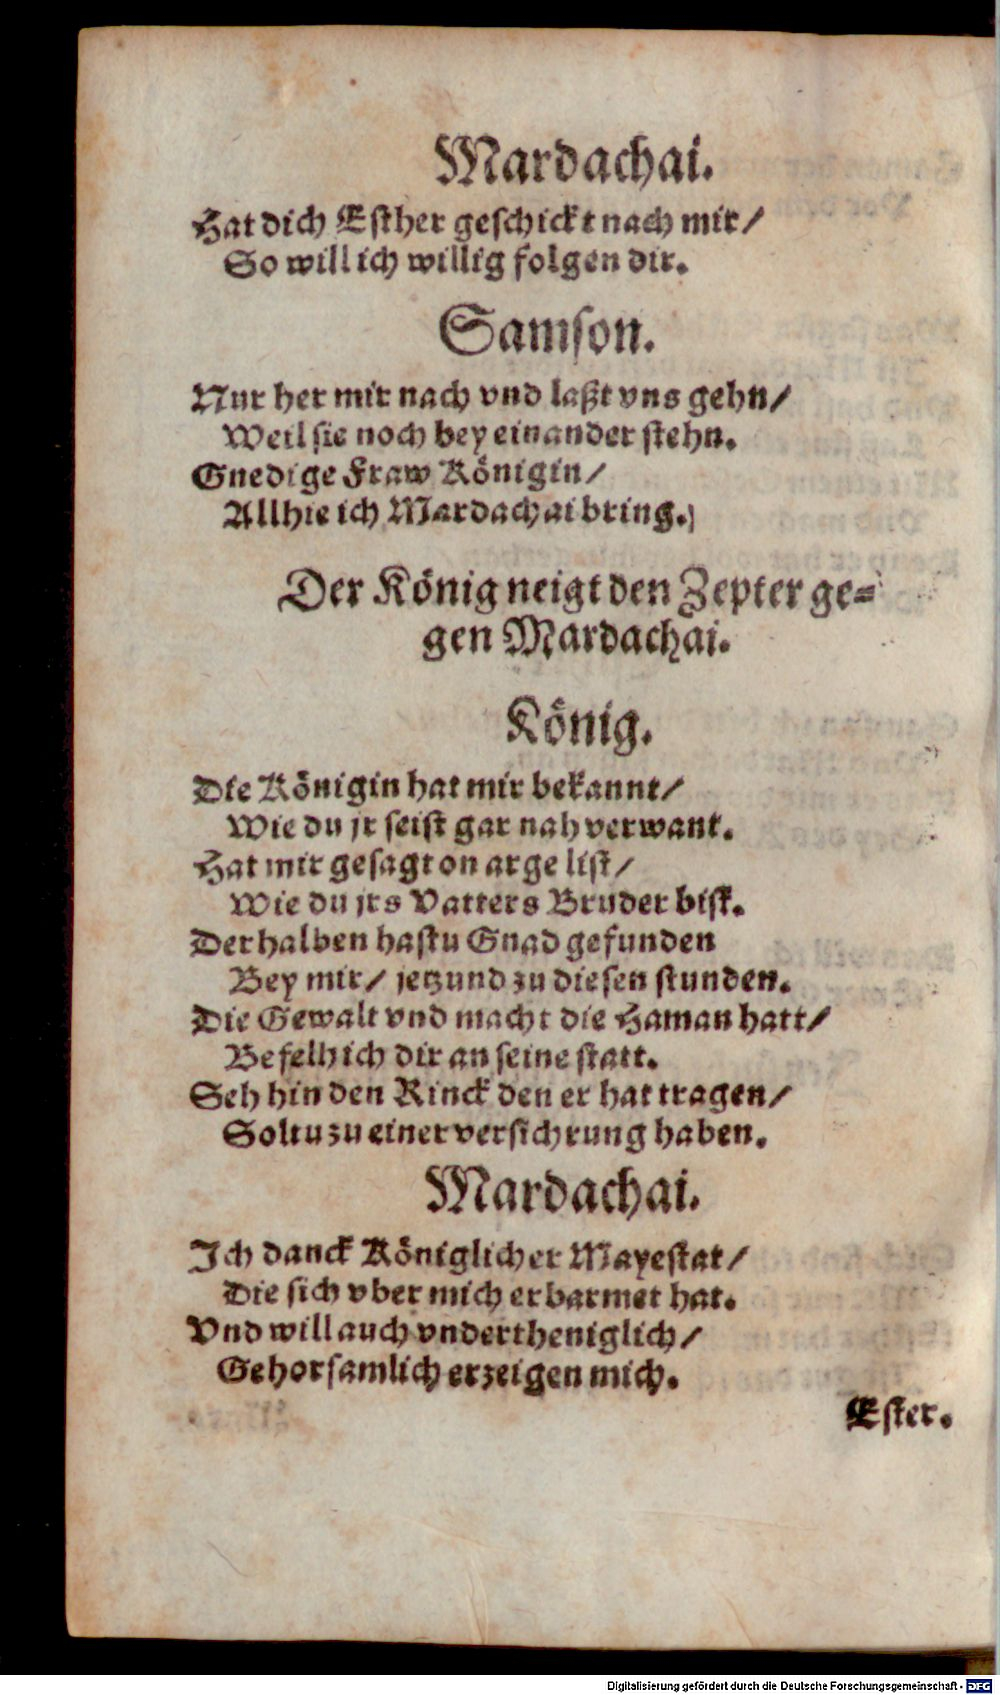 Mardachai.
Hat dich Esther geschickt nach mir/
So will ich willig folgen dir.
Samson.
Nur her mir nach vnd laßt vns gehn/
Weil sie noch bey einander stehn.
Gnedige Fraw Königin/
Allhie ich Mardachai bring.
Der König neigt den Zepter ge-
gen Mardachai.
König.
Die Königin hat mir bekannt/
Wie du jr seist gar nah verwant.
Hat mir gesagt on arge list/
Wie du jrs Vatters Bruder bist.
Derhalben hastu Gnad gefunden
Bey mir/ jetzund zu diesen stunden.
Die Gewalt vnd macht die Haman hatt/
Befelh ich dir an seine statt.
Seh hin den Rinck den er hat tragen/
Soltu zu einer versichrung haben.
Mardachai.
Ich danck Königlicher Mayestat/
Die sich vber mich erbarmet hat.
Vnd will auch vndertheniglich/
Gehorsamlich erzeigen mich.
Ester.
Digitalisierung gefördert durch die Deutsche Forschungsgemeinschaft - DFG